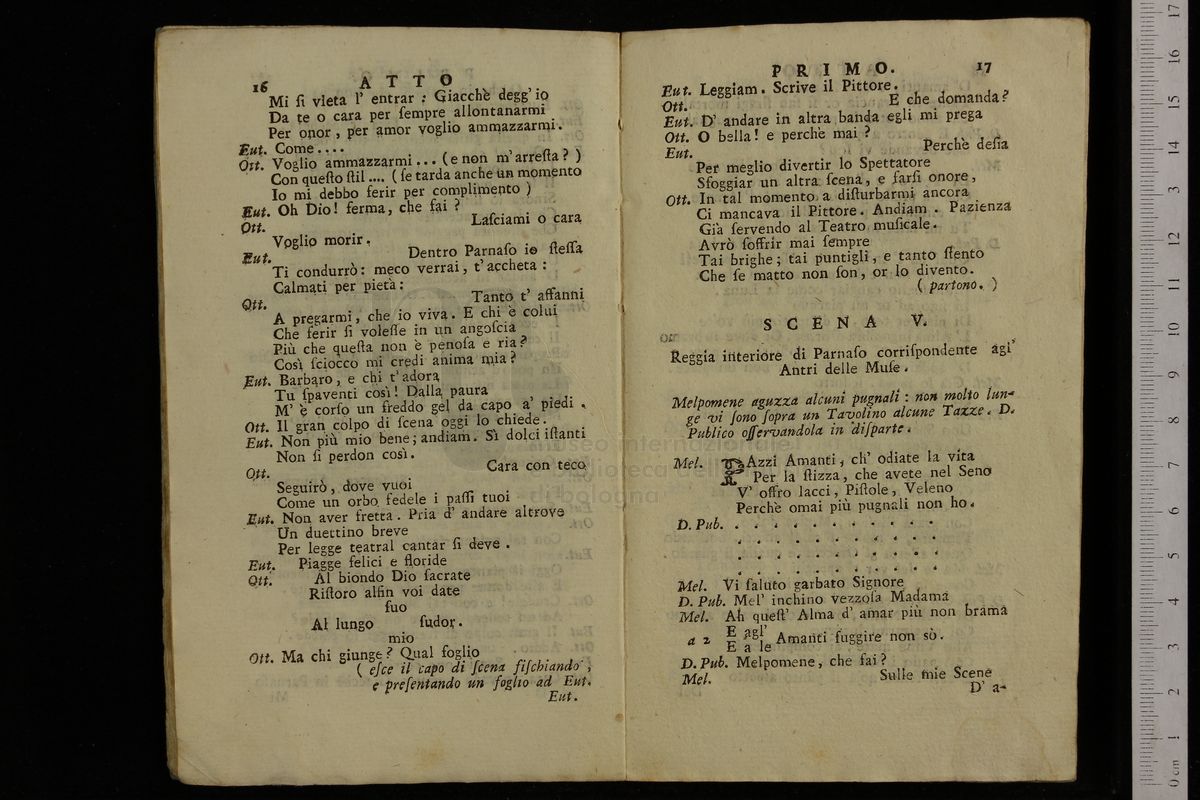 16 ATTO
Mi ſi vieta l' entrar : Giacchè degg' io
Da te o cara per ſempre allontanarmi
Per onor , per amor voglio ammazzarmi.
Eut. Come ....
Ott. Voglio ammazzarmi ... ( e non m'arreſta ? )
Con queſto ſtil .... ( ſe tarda anche un momento
Io mi debbo ferir per complimento )
Eut. Oh Dio! ferma, che fai ?
Ott. Laſciami o cara
Voglio morir.
Eut. Dentro Parnaſo io ſteſſa
Ti condurrò : meco verrai, t' accheta :
Calmati per pietà :
Ott. Tanto t' affanni
A pregarmi, che io viva. E chi è colui
Che ferir ſi voleſſe in un angoſcia
Più che queſta non è penoſa e ria ?
Così ſciocco mi credi anima mia ?
Eut. Barbaro, e chi t'adora
Tu ſpaventi così ! Dalla paura
M' è corſo un freddo gel da capo a' piedi .
Ott. Il gran colpo di ſcena oggi lo chiede.
Eut. Non più mio bene; andiam. Sì dolci iſtanti
Non ſi perdon così.
Ott. Cara con teco
Seguirò, dove vuoi
Come un orbo fedele i paſſi tuoi
Eut. Non aver fretta . Pria d' andare altrove
Un duettino breve
Per legge teatral cantar ſi deve .
Eut. Piagge felici e floride
Ott. Al biondo Dio ſacrate
Riſtoro alfin voi date
ſuo
Al lungo ſudor.
mio
Ott. Ma chi giunge ? Qual foglio
( eſce il capo di ſcena fiſchiando ,
e preſentando un foglio ad Eut.
Eut.
PRIMO. 17
Eut. Leggiam. Scrive il Pittore.
Ott. E che domanda ?
Eut. D' andare in altra banda egli mi prega
Ott. O bella ! e perchè mai ?
Eut. Perchè deſia
Per meglio divertir lo Spettatore
Sfoggiar un altra ſcena, e farſi onore,
Ott. In tal momento a diſturbarmi ancora
Ci mancava il Pittore. Andiam . Pazienza
Già ſervendo al Teatro muſicale.
Avrò ſoffrir mai ſempre
Tai brighe ; tai puntigli, e tanto ſtento
Che ſe matto non ſon, or lo divento.
( partono. )
SCENA V.
Reggia interiore di Parnaſo corriſpondente agi'
Antri delle Muſe.
Melpomene aguzza alcuni pugnali : non molto lun-
ge vi ſono ſopra un Tavolino alcune Tazze. D.
Publico oſſervandola in diſparte.
Mel. RAzzi Amanti, ch' odiate la vita
Per la ſtizza, che avete nel Seno
V' offro lacci, Piſtole, Veleno
Perchè omai più pugnali non ho.
D. Pub. . . . . . . . . . . .
. . . . . . . . . . .
. . . . . . . . . . .
. . . . . . . . . . .
Mel. Vi ſaluto garbato Signore
D. Pub. Mel' inchino vezzoſa Madama
Mel. Ah queſt' Alma d' amar più non brama
a 2 E agl'
E a le Amanti fuggire non sò.
D. Pub. Melpomene, che fai ?
Mel. Sulle mie Scene
D' a-